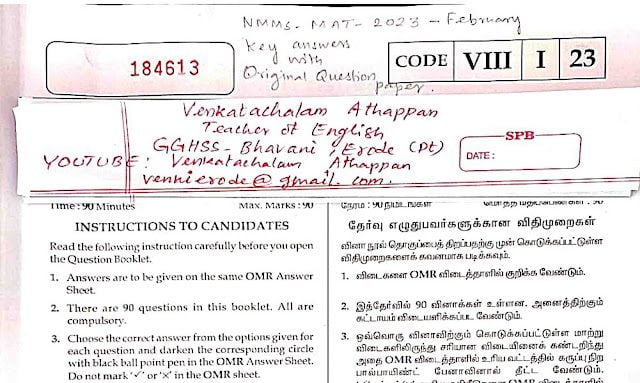 NMMS. MAT- 2023 - February
Key answers
with
Original Question
paper.
184613
CODE VIII I 23
Venkatachalam Athappan
Teacher of English
GGHSS- Bhavani, Erode (Dt)
YOUTUBE: Venkatachalam Athappan
venkierode@gmail.com.
SPB
DATE :
Time : 90 Minutes
Max. Marks : 90
INSTRUCTIONS TO CANDIDATES
Read the following instruction carefully before you open
the Question Booklet.
1. Answers are to be given on the same OMR Answer
Sheet.
2. There are 90 questions in this booklet. All are
compulsory.
3. Choose the correct answer from the options given for
each question and darken the corresponding circle
with black ball point pen in the OMR Answer Sheet.
Do not mark '✓' or '×' in the OMR sheet.
நேரம் : 90 நிமிடங்கள்
மொத்த மதிப்பெண்கள் : 90
தேர்வு எழுதுபவர்களுக்கான விதிமுறைகள்
வினா நூல் தொகுப்பைத் திறப்பதற்கு முன் கொடுக்கப்பட்டுள்ள
விதிமுறைகளைக் கவனமாக படிக்கவும்.
1. விடைகளை OMR விடைத்தாளில் குறிக்க வேண்டும்.
2. இத்தேர்வில் 90 வினாக்கள் உள்ளன. அனைத்திற்கும்
கட்டாயம் விடையளிக்கப்பட வேண்டும்.
3. ஒவ்வொரு வினாவிற்கும் கொடுக்கப்பட்டுள்ள மாற்று
விடைகளிலிருந்து சரியான விடையினைக் கண்டறிந்து
அதை OMR விடைத்தாளில் உரிய வட்டத்தில் கருப்பு நிற
பால்பாயிண்ட் பேனாவினால் நீட்ட வேண்டும்.